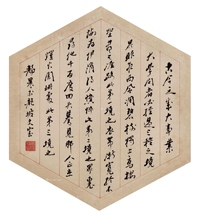 古今之成大事業
大學問者必經過三種之境
界昨夜西風凋碧樹獨上高樓
望盡天涯路此第一境也衣帶漸寬終不
悔為伊消得人憔悴此第二境也眾裏
尋他千百度回頭驀見那人正在
燈火闌珊處此第三境也
靜農於龍坡丈室